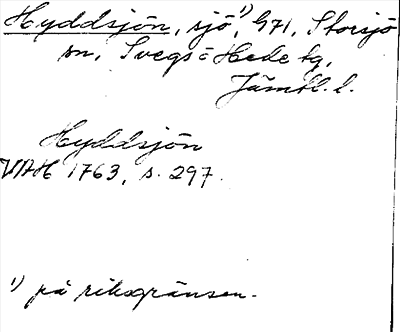 Hyddsjön, sjö,¹⁾ G71, Storsjö
sn, Svegs = Hede tg,
Jämtl. l.
Hyddsjön
VAH 1763, s. 297.
¹⁾ på riksgränsen.